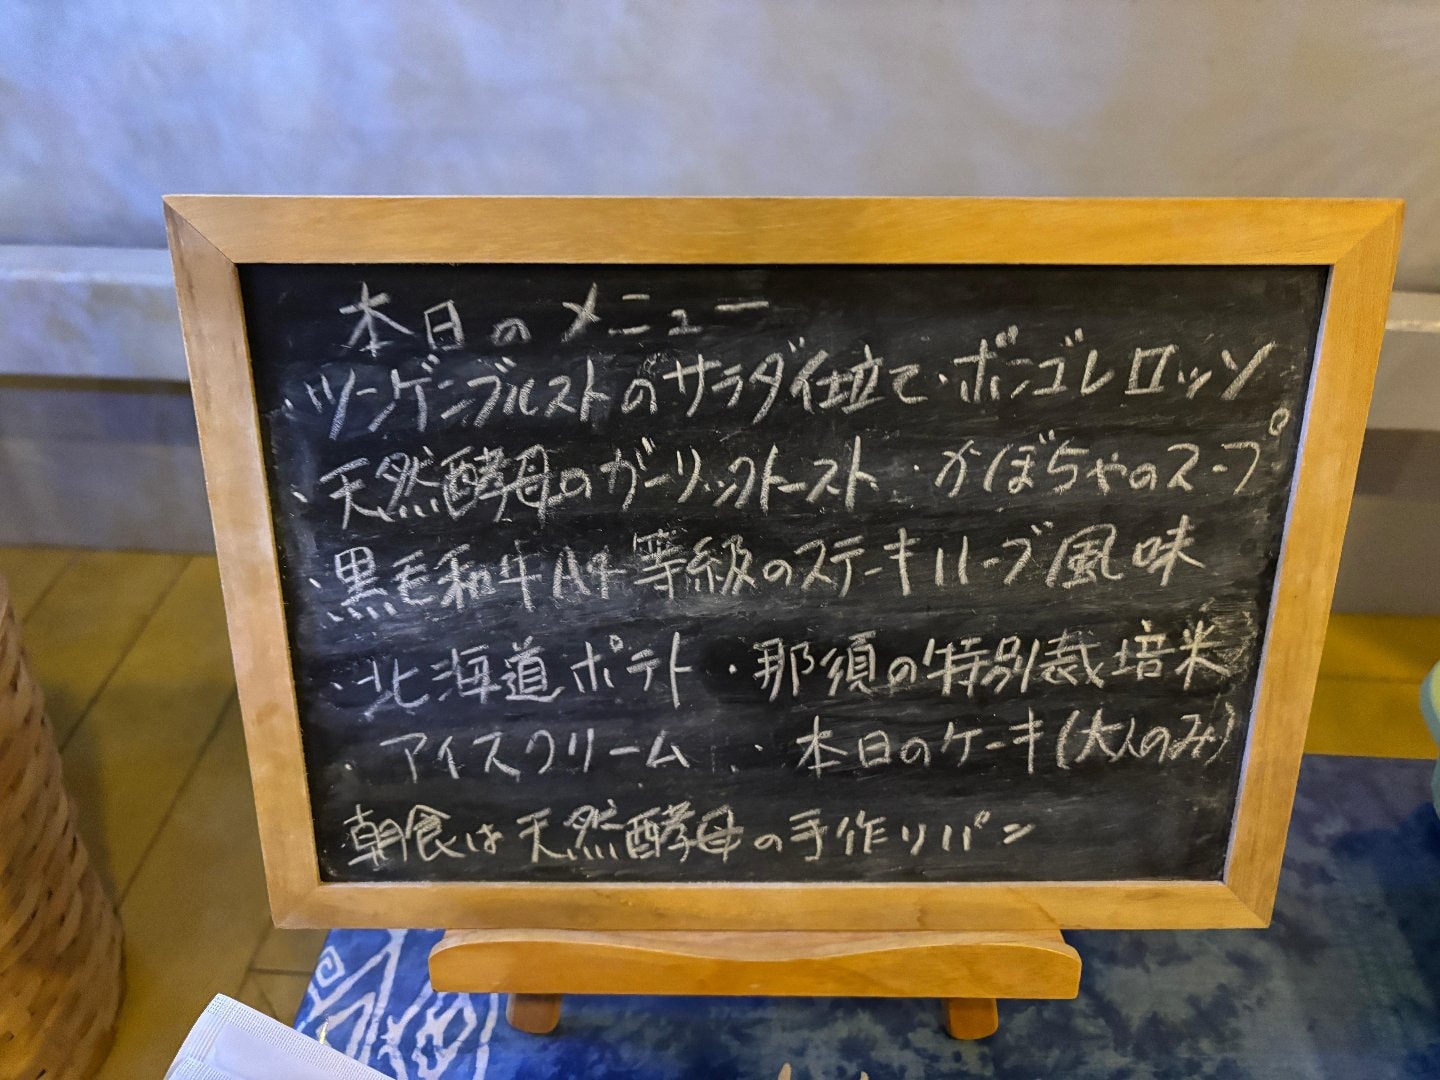 本日のメニュー
・ツンゲンブルストのサラダ仕立て・ボンゴレロッソ
・天然酵母のガーリックトースト・かぼちゃのスープ
・黒毛和牛A4等級のステーキハーブ風味
・北海道ポテト・那須の特別栽培米
・アイスクリーム・本日のケーキ(大人のみ)
朝食は天然酵母の手作りパン